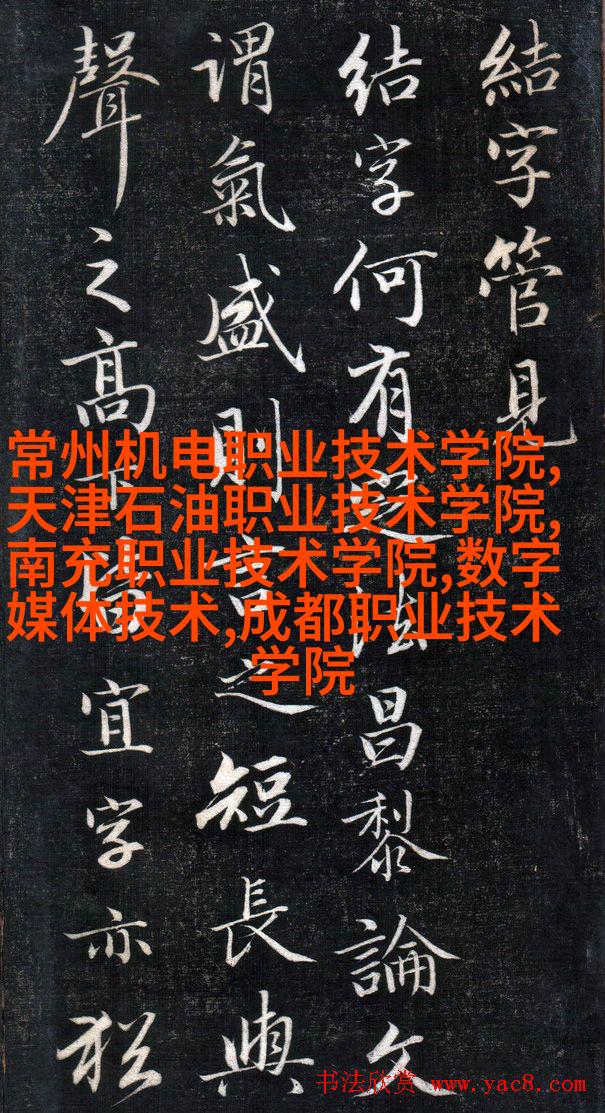 結字管見
結字何有定法昌黎論文
謂氣盛則言之短長與
聲之高下皆宜字亦猶
常州机电职业技术学院,
天津石油职业技术学院,
南充职业技术学院,数字
媒体技术,成都职业技术
学院
书法欣赏 www.yac8.com